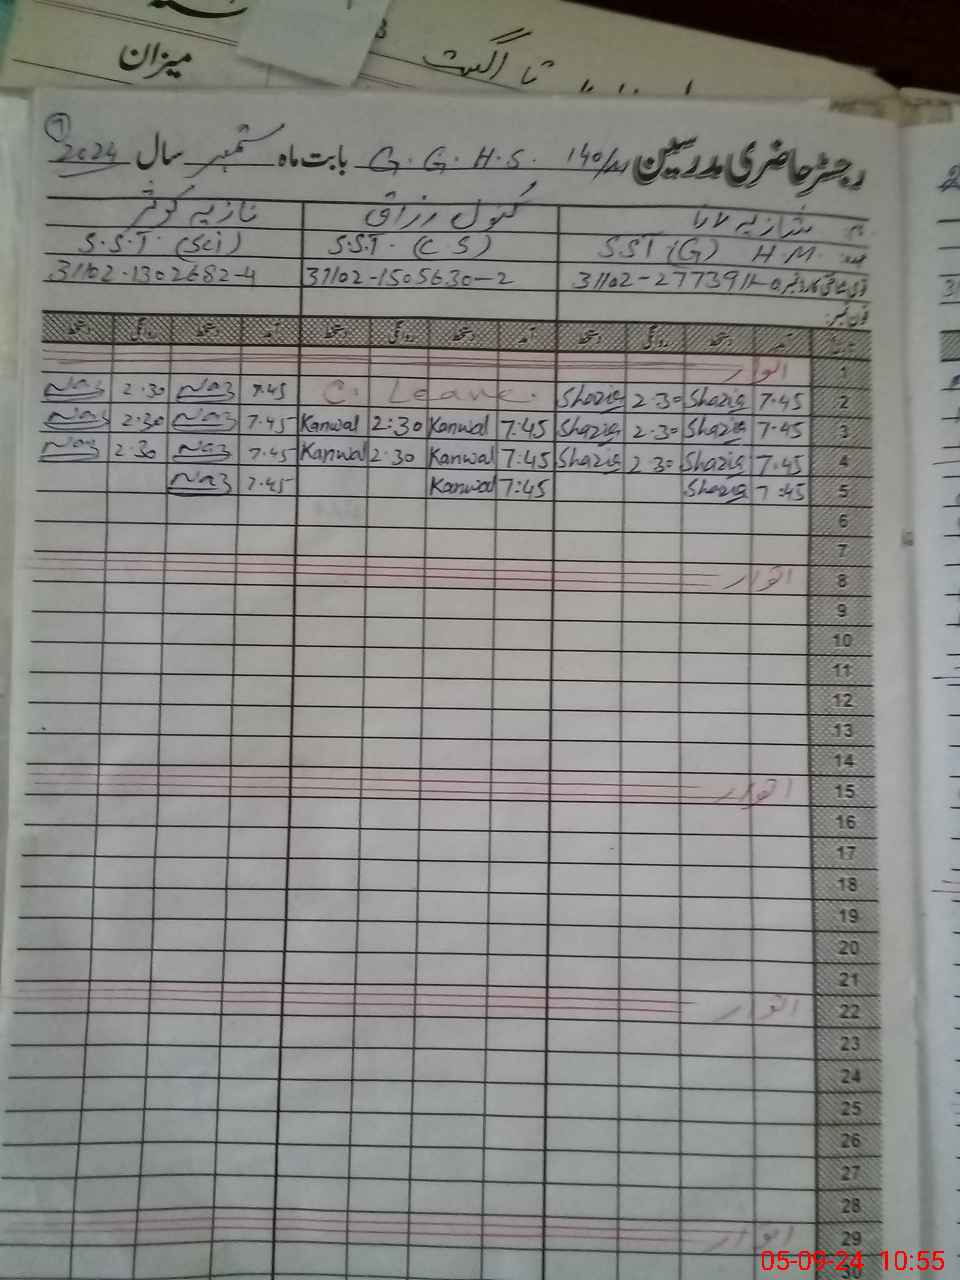 میزان
تا اگست
رجسٹر حاضری مدرسین G.G.H.S. 140/ بابت ماہ ستمبر سال 2024
شازیہ کنول رزاق نازیہ کوثر
SST (G) H.M. S.S.T. (C S) S.S.T. (Sci)
قومی شناختی کارڈ نمبر 31102-1505630-2 31102-1302682-4
فون نمبر:
آمد دستخط روانگی دستخط آمد دستخط روانگی دستخط آمد دستخط روانگی دستخط
1 اتوار
2 7.45 Shazia 2.30 Shazia C. Leave. 7.45 Naz 2.30 Naz
3 7.45 Shazia 2.30 Shazia 7:45 Kanwal 2:30 Kanwal 7.45 Naz 2.30 Naz
4 7.45 Shazia 2.30 Shazia 7:45 Kanwal 2.30 Kanwal 7.45 Naz 2.30 Naz
5 7:45 Shazia 7:45 Kanwal 7.45 Naz
6
7
8 اتوار
9
10
11
12
13
14
15 اتوار
16
17
18
19
20
21
22 اتوار
23
24
25
26
27
28
29 اتوار
30
05-09-24 10:55